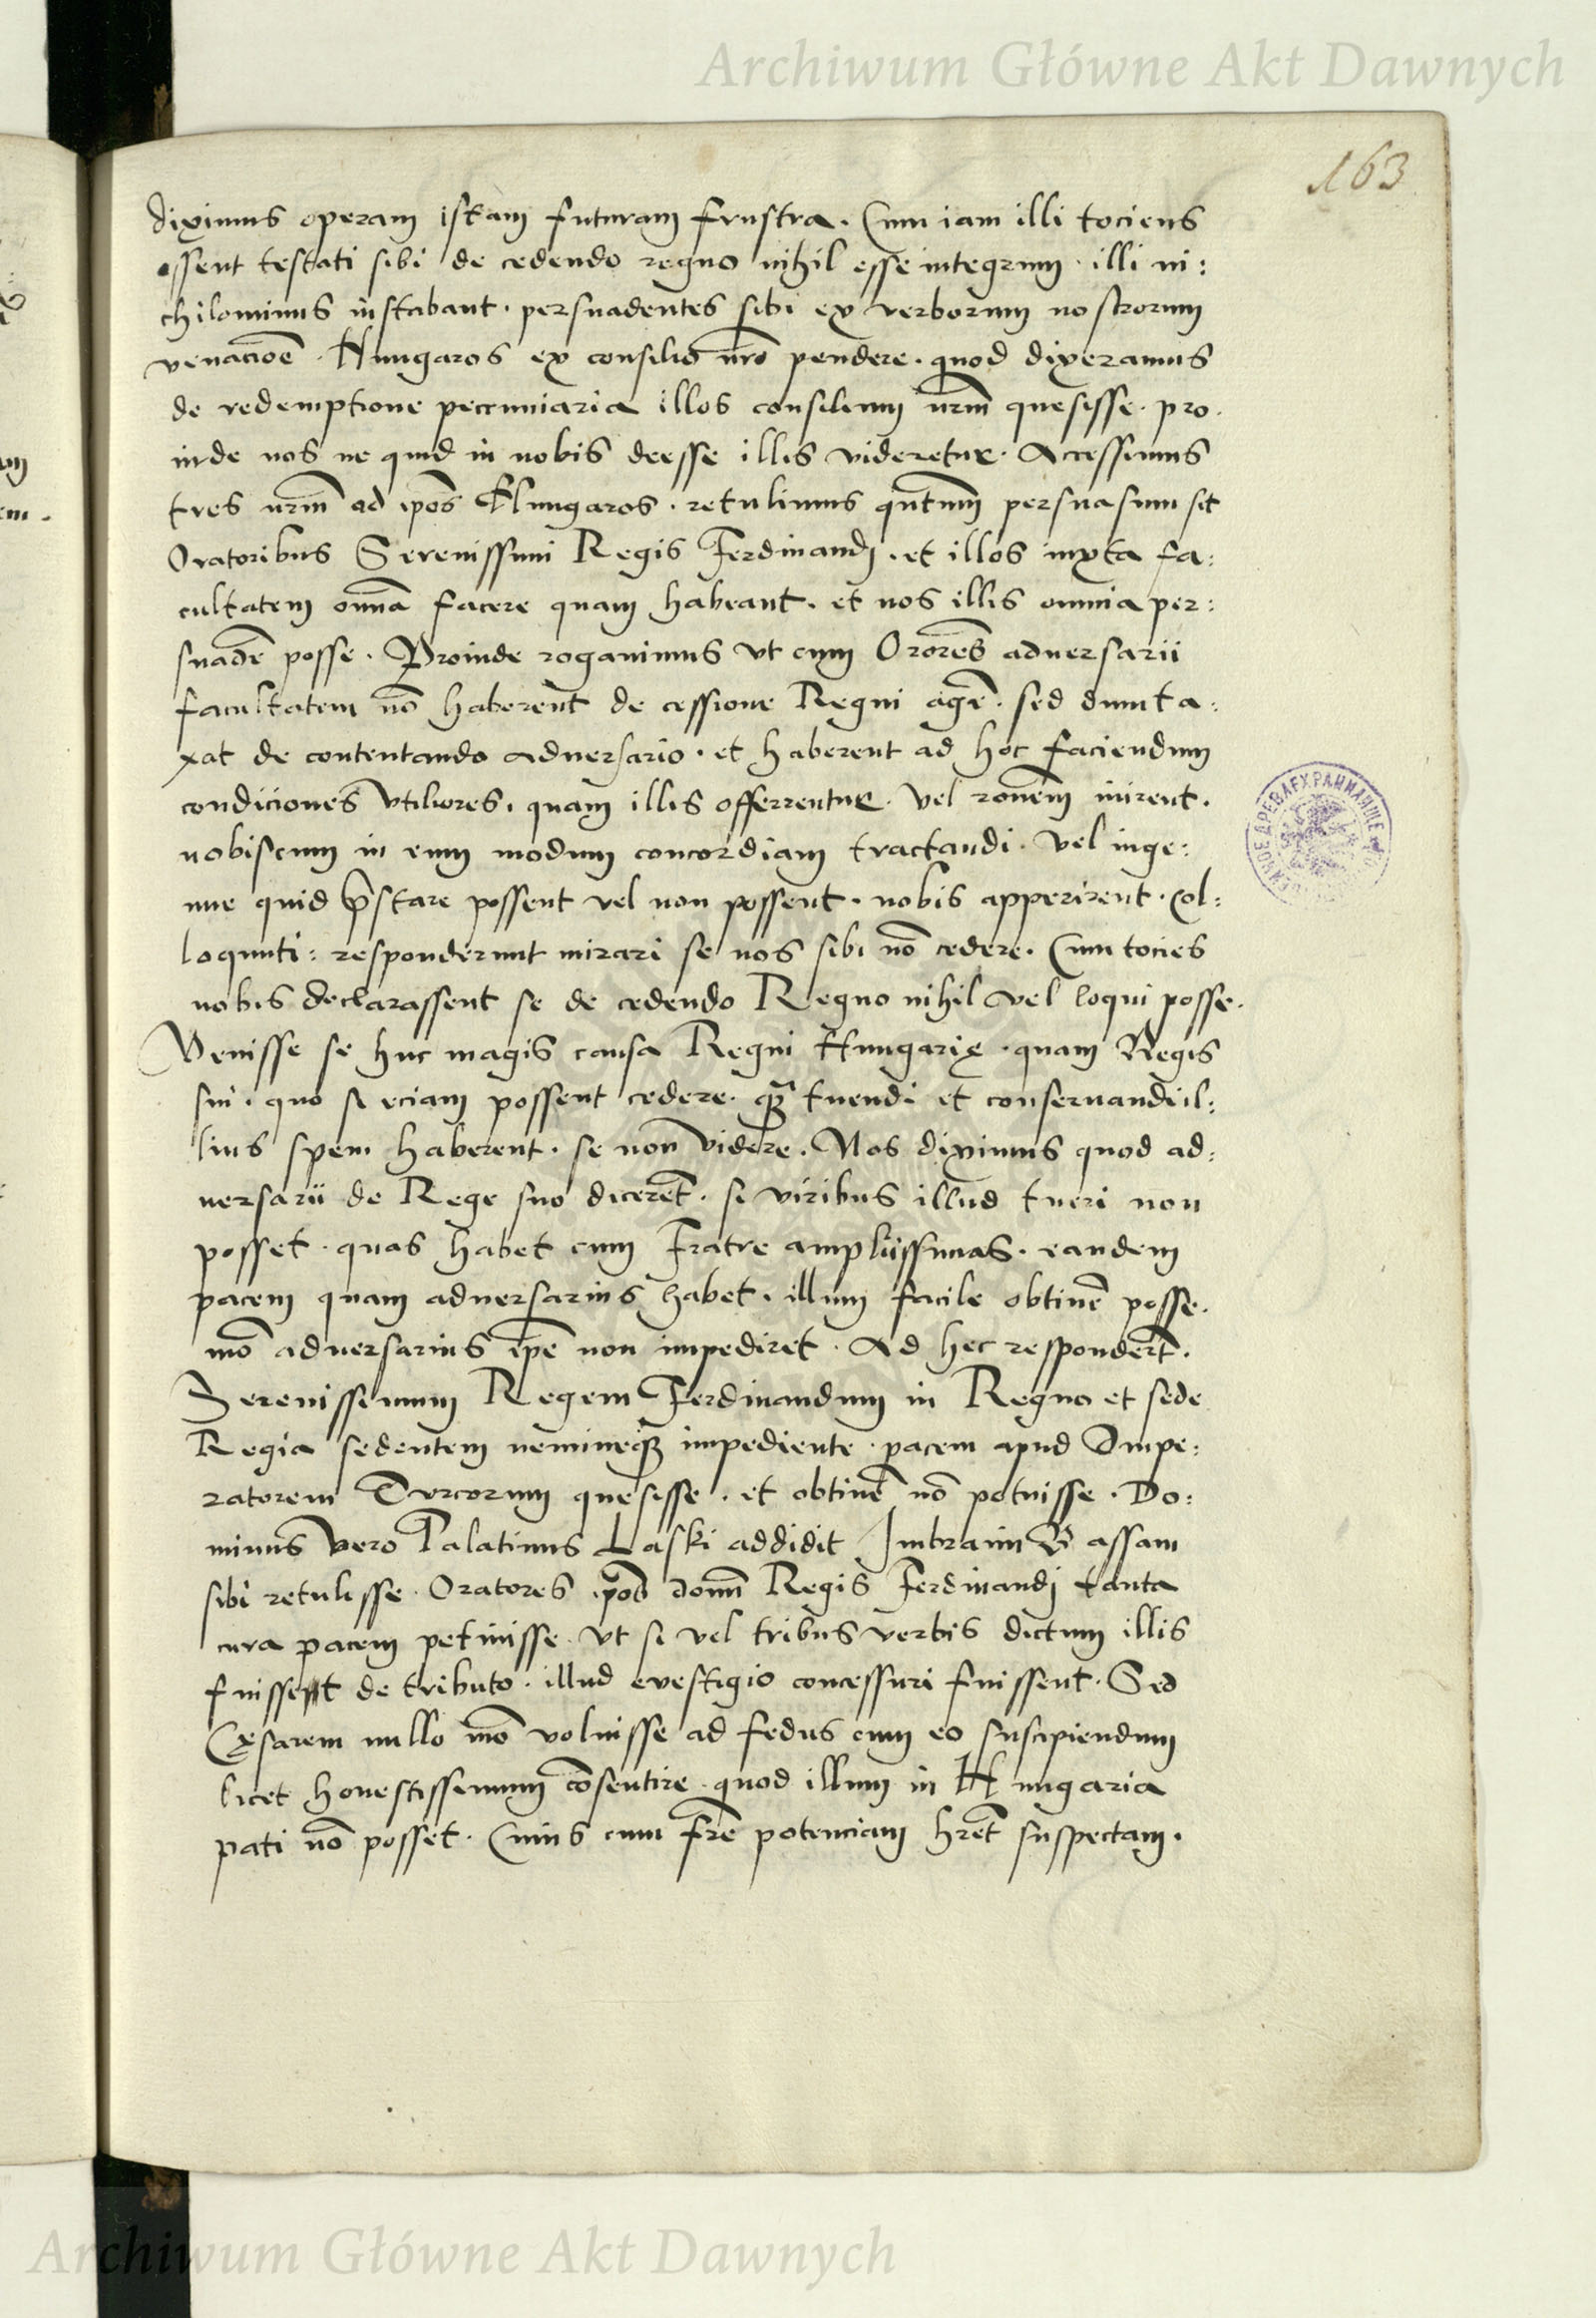 Archiwum Główne Akt Dawnych
163
diximus operam istam futuram frustra. Cum iam illi tociens
essent testati sibi de cedendo regno nihil esse integrum. illi ni:
chilominus instabant. persuadentes sibi ex verborum nostrorum
venacioē. Hungaros ex consilio nr̄o pendere. quod dixeramus
de redemptione peccuniaria illos consilium nr̄m quesisse. pro.
inde nos ne quid in nobis deesse illis videretur. Accessimus
tres nr̄m ad ip̄os Hungaros. retulimus qn̄tum persuasum sit
Oratoribus Serenissimi Regis Ferdinandj. et illos iuxta fa:
cultatem omnā facere quam habeant. et nos illis omnia per:
suadē posse. Proinde rogavimus vt cum Ororēs adversarii
facultatem nō haberent de cessione Regni agē. sed dumta:
xat de contentando adversario. et haberent ad hoc faciendum
condiciones vtiliores. quam illis offerrentur. Vel ronēm inirent.
nobiscum in eum modum concordiam tractandi. Vel inge:
nue quid p̄stare possent vel non possent. nobis apperirent. Col:
loquuti: responderunt mirari se nos sibi nō cedere. Cum tocies
nobis declarassent se de cedendo Regno nihil vel loqui posse.
Venisse se huc magis causa Regni Hungarię. quam Regis
sui. quo si eciam possent cedere. quā tuendi et conservandi il:
lius spem haberent. se non videre. Nos diximus quod ad:
versarii de Rege suo dicerēt. si viribus illud tueri non
posset. quas habet cum Fratre amplissimas. eandem
pacem quam adversarius habet. illum facile obtinē posse.
mō adversarius ip̄e non impediret. Ad hec respondert̄.
Serenissimum Regem Ferdinandum in Regno et sede
Regia sedentem nemineq̄ impediente. pacem apud Impe:
ratorem Turcorum quesisse. et obtinē nō potuisse. Do:
minus Vero Palatinus Laski addidit Imbraim Bassam
sibi retulisse. Oratores p̄od domī Regis Ferdinandj tanta
cura pacem petiuisse. Vt si vel tribus verbis dictum illis
fuisset de tributo. illud evestigio concessuri fuissent. Sed
Cęsarem nullo mō voluisse ad fedus cum eo suscipiendum
licet honestissimum cōsentire. quod illum in Hungaria
pati nō posset. Cuius cum fr̄e potenciam hr̄et suspectam.
Archiwum Główne Akt Dawnych